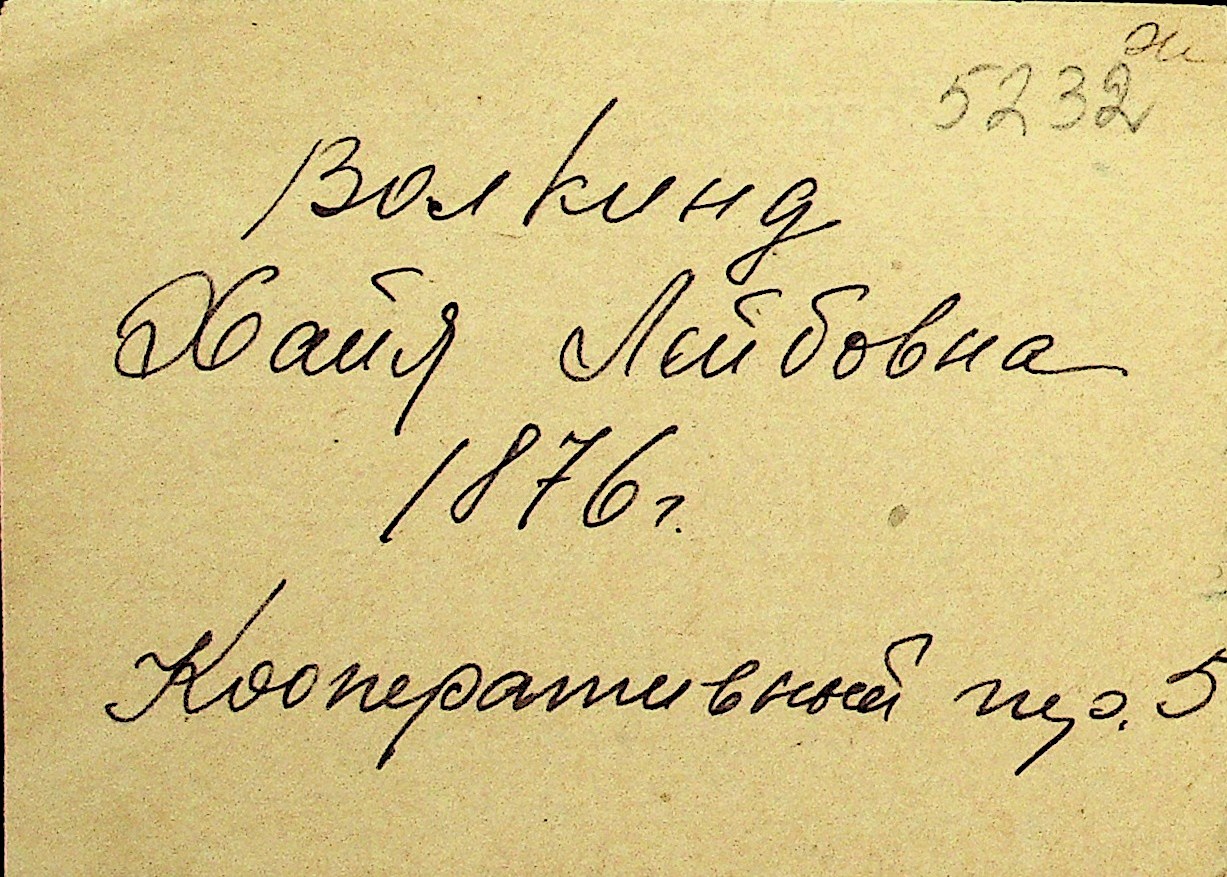 5232
Волкинд
Хайя Лейбовна
1876 г.
Кооперативный пер. 5